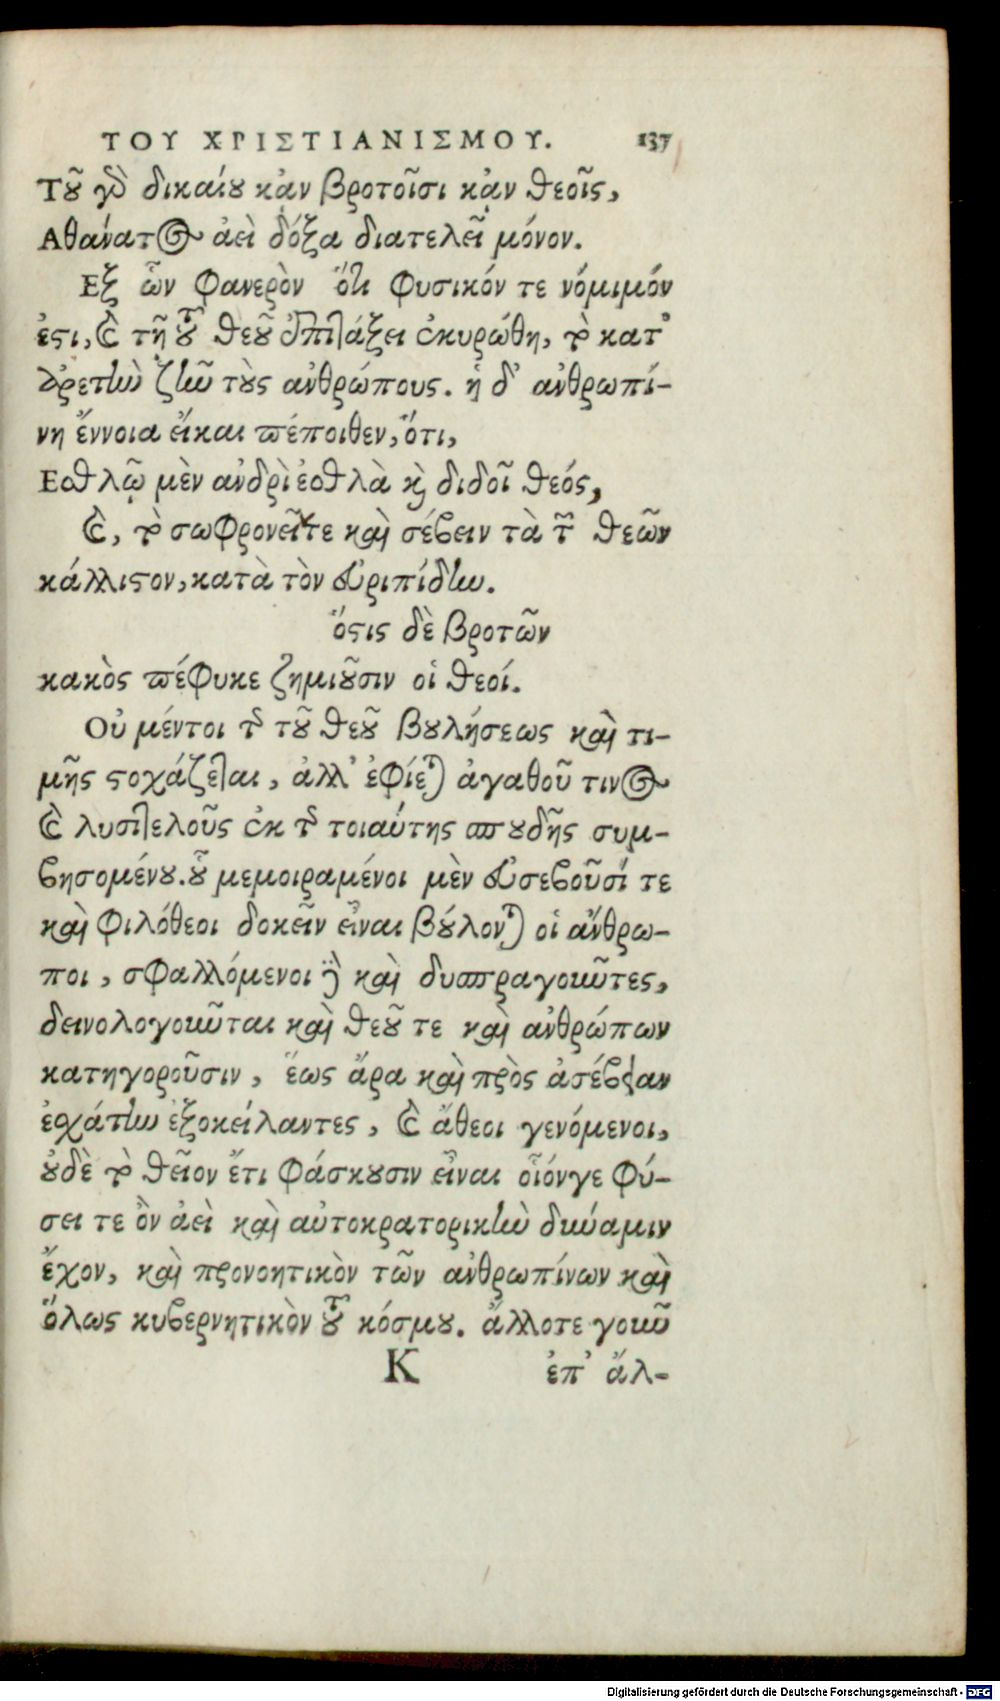 ΤΟΥ ΧΡΙΣΤΙΑΝΙΣΜΟΥ. 137
Τοῦ γὰρ δικαίου κᾀν βροτοῖσι κᾀν θεοῖς,
Αθάνατος ἀεὶ δόξα διατελεῖ μόνον.
Εξ ὧν φανερὸν ὅτι φυσικόν τε νόμιμόν
ἐστι, καὶ τῇ τοῦ θεοῦ ἐπιτάξει ἐκυρώθη, τὸ κατ'
ἀρετὴν ζῆν τοὺς ἀνθρώπους. ἡ δ' ἀνθρωπί-
νη ἔννοια εἴκαι πέποιθεν, ὅτι,
Εσθλῷ μὲν ἀνδρὶ ἐσθλὰ καὶ διδοῖ θεός,
καὶ, τὸ σωφρονεῖν τε καὶ σέβειν τὰ τῶν θεῶν
κάλλιστον, κατὰ τὸν Εὐριπίδην.
ὅστις δὲ βροτῶν
κακὸς πέφυκε ζημιοῦσιν οἱ θεοί.
Οὐ μέντοι τῆς τοῦ θεοῦ βουλήσεως καὶ τι-
μῆς στοχάζεται, ἀλλ' ἐφίεται ἀγαθοῦ τινος
καὶ λυσιτελοῦς ἐκ τῆς τοιαύτης σπουδῆς συμ-
βησομένου. οὗ μεμοιραμένοι μὲν εὐσεβοῦσί τε
καὶ φιλόθεοι δοκεῖν εἶναι βούλονται οἱ ἄνθρω-
ποι, σφαλλόμενοι δὲ καὶ δυσπραγοῦντες,
δεινολογοῦνται καὶ θεοῦ τε καὶ ἀνθρώπων
κατηγοροῦσιν, ἕως ἄρα καὶ πρὸς ἀσέβειαν
ἐσχάτην ἐξοκείλαντες, καὶ ἄθεοι γενόμενοι,
οὐδὲ τὸ θεῖον ἔτι φάσκουσιν εἶναι οἷόνγε φύ-
σει τε ὂν ἀεὶ καὶ αὐτοκρατορικὴν δύναμιν
ἔχον, καὶ προνοητικὸν τῶν ἀνθρωπίνων καὶ
ὅλως κυβερνητικὸν τοῦ κόσμου. ἄλλοτε γοῦν
K ἐπ' ἄλ-
Digitalisierung gefördert durch die Deutsche Forschungsgemeinschaft - DFG